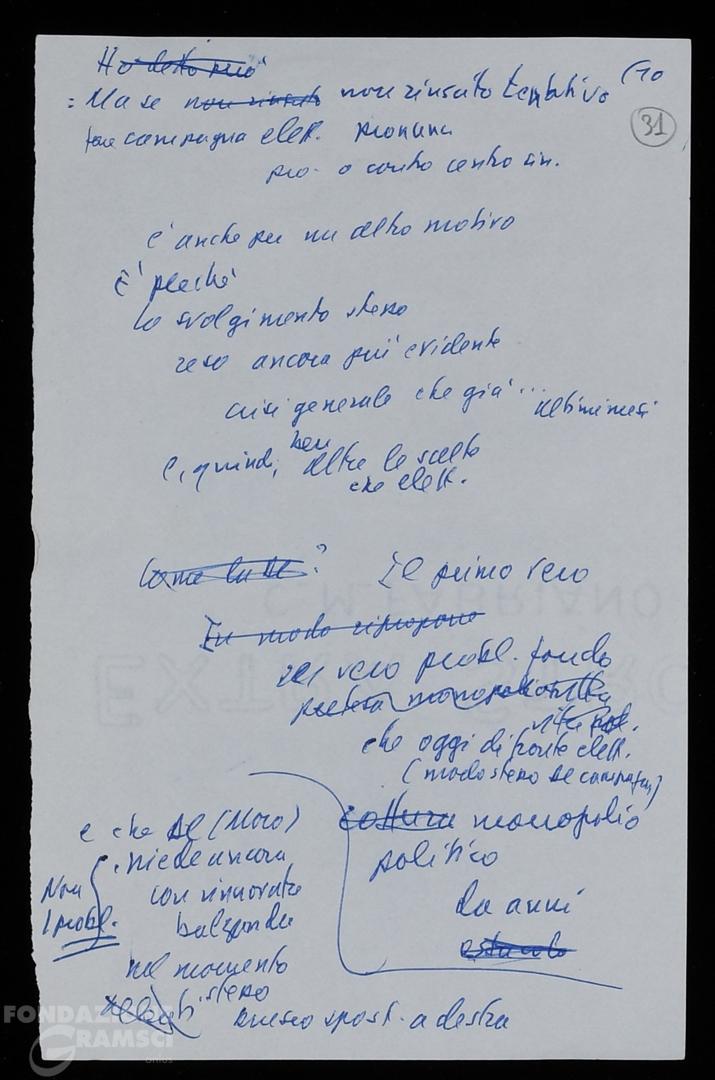 Ho detto più
(10
31
= Ma se non riuscito non riuscito tentativo
fare campagna elett.
pro- o contro centro sin.
è anche per un altro motivo
È perché
lo svolgimento stesso
reso ancora più evidente
crisi generale che già ... ultimi mesi
e, quindi, ben oltre le scelte
che elett.
Come la DC? Il primo vero
In modo
vero probl. fondo
pretesa
vita pol.
che oggi di fronte elett.
(modo stesso DC campagna)
monopolio
politico
da anni
ostacolo
e che DC (Moro)
Non
1 probl.
ancora
con rinnovata
nel momento
stesso
spost. a destra
FONDAZIONE
GRAMSCI
onlus
EXTRA
C.M.FABRIANO